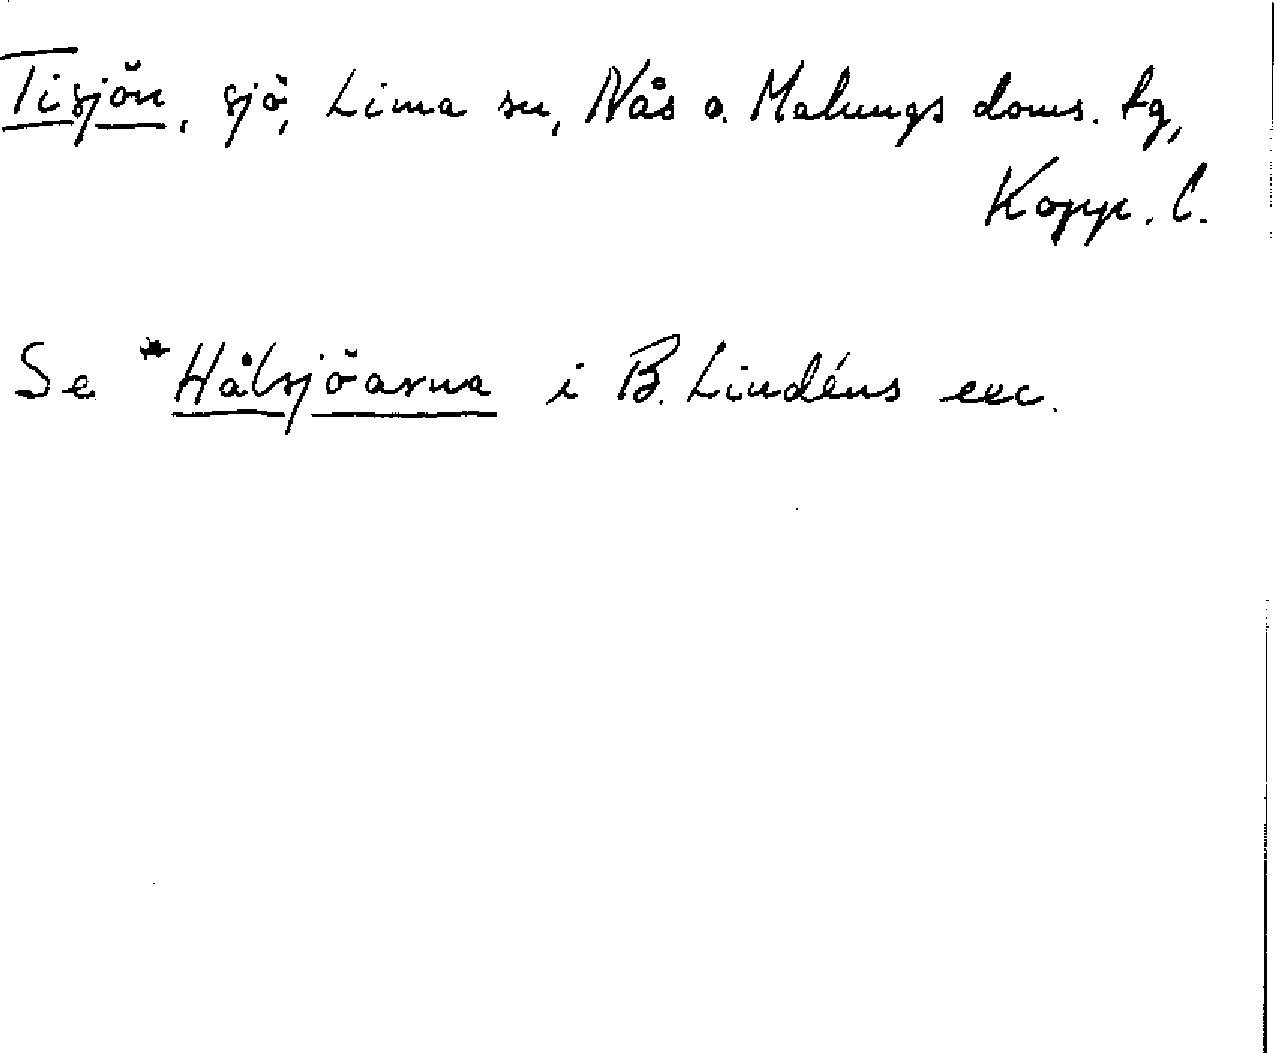 Tisjön, sjö, Lima sn, Nås o. Malungs doms. tg,
Kopp. l.
Se *Hålsjöarna i B. Lindéns exc.